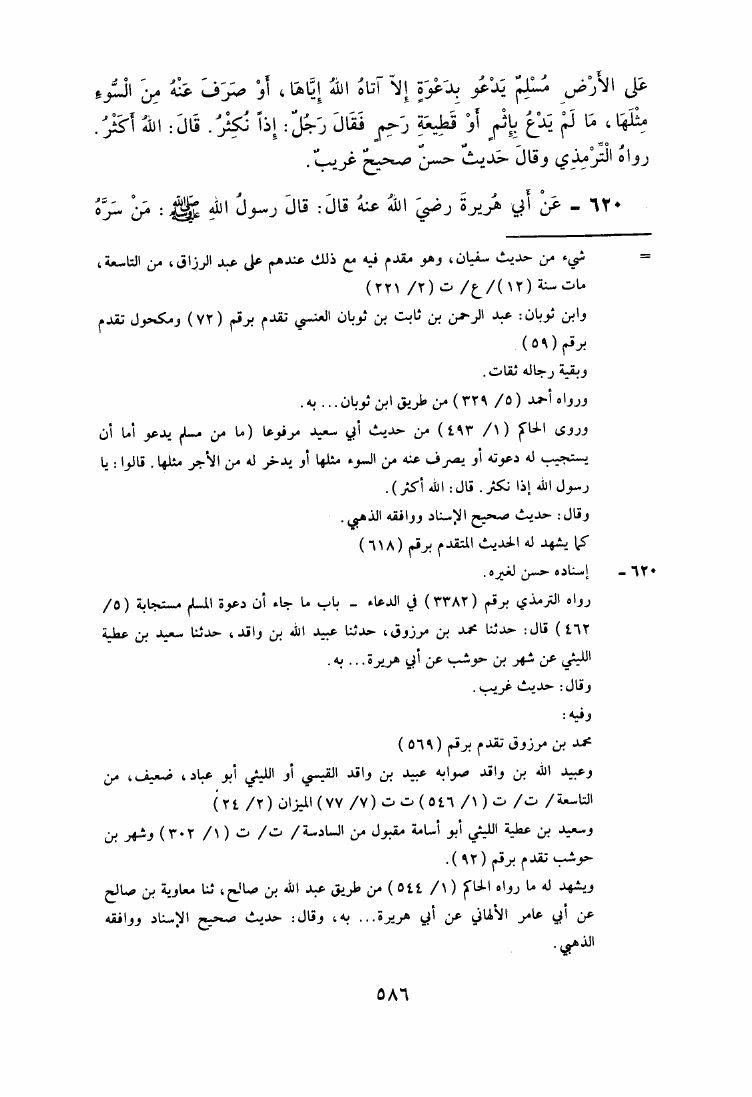 عَلى الأَرْضِ مُسْلِمٌ يَدْعُو بِدَعْوَةٍ إِلاّ آتاهُ اللهُ إيَّاهَا، أَوْ صَرَفَ عَنْهُ مِنَ السُّوءِ
مِثْلَهَا، مَا لَمْ يَدْعُ بِإِثْمٍ أَوْ قَطِيعَةِ رَحِمٍ فَقَالَ رَجُلٌ: إذاً نُكثِرُ. قَالَ: اللهُ أَكثَرُ.
رواهُ التِّرْمِذِي وقالَ حَديثٌ حسنٌ صحيحٌ غريبٌ.
٦٢٠ - عَنْ أَبي هُريرةَ رضيَ اللهُ عنهُ قالَ: قالَ رسولُ اللهِ ﷺ: مَنْ سَرَّهُ
= شيء من حديث سفيان، وهو مقدم فيه مع ذلك عندهم على عبد الرزاق، من التاسعة،
مات سنة (١٢)/ ع/ ت (٢/ ٢٢١)
وابن ثوبان: عبد الرحمن بن ثابت بن ثوبان العنسي تقدم برقم (٧٢) ومكحول تقدم
برقم (٥٩)
وبقية رجاله ثقات.
ورواه أحمد (٥/ ٣٢٩) من طريق ابن ثوبان... به.
وروى الحاكم (١/ ٤٩٣) من حديث أبي سعيد مرفوعا (ما من مسلم يدعو أما أن
يستجيب له دعوته أو يصرف عنه من السوء مثلها أو يدخر له من الأجر مثلها. قالوا: يا
رسول الله إذا نكثر. قال: الله أكثر).
وقال: حديث صحيح الإسناد ووافقه الذهبي.
كما يشهد له الحديث المتقدم برقم (٦١٨)
٦٢٠ - إسناده حسن لغيره.
رواه الترمذي برقم (٣٣٨٢) في الدعاء - باب ما جاء أن دعوة المسلم مستجابة (٥/
٤٦٢) قال: حدثنا محمد بن مرزوق، حدثنا عبيد الله بن واقد، حدثنا سعيد بن عطية
الليثي عن شهر بن حوشب عن أبي هريرة... به.
وقال: حديث غريب.
وفيه:
محمد بن مرزوق تقدم برقم (٥٦٩)
وعبيد الله بن واقد صوابه عبيد بن واقد القيسي أو الليثي أبو عباد، ضعيف، من
التاسعة/ ت/ ت (١/ ٥٤٦) ت ت (٧/ ٧٧) الميزان (٢/ ٢٤)
وسعيد بن عطية الليثي أبو أسامة مقبول من السادسة/ ت/ ت (١/ ٣٠٢) وشهر بن
حوشب تقدم برقم (٩٢).
ويشهد له ما رواه الحاكم (١/ ٥٤٤) من طريق عبد الله بن صالح، ثنا معاوية بن صالح
عن أبي عامر الألهاني عن أبي هريرة... به، وقال: حديث صحيح الإسناد ووافقه
الذهبي.
٥٨٦